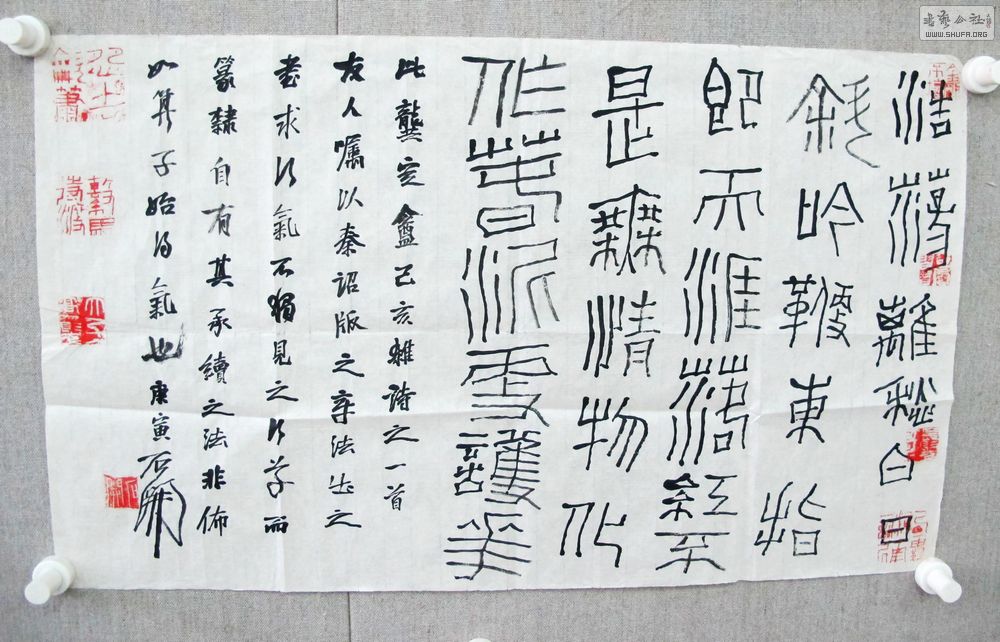 浩蕩離愁白日
斜吟鞭東指
即天涯落紅不
是無情物化
作春泥更護花
此龔定盦己亥雜詩之一首
友人囑以秦詔版之章法出之
書求行氣不獨見之行草而
篆隸自有其承續之法非佈
如算子始得氣也庚寅石開
書藝公社
WWW.SHUFA.ORG